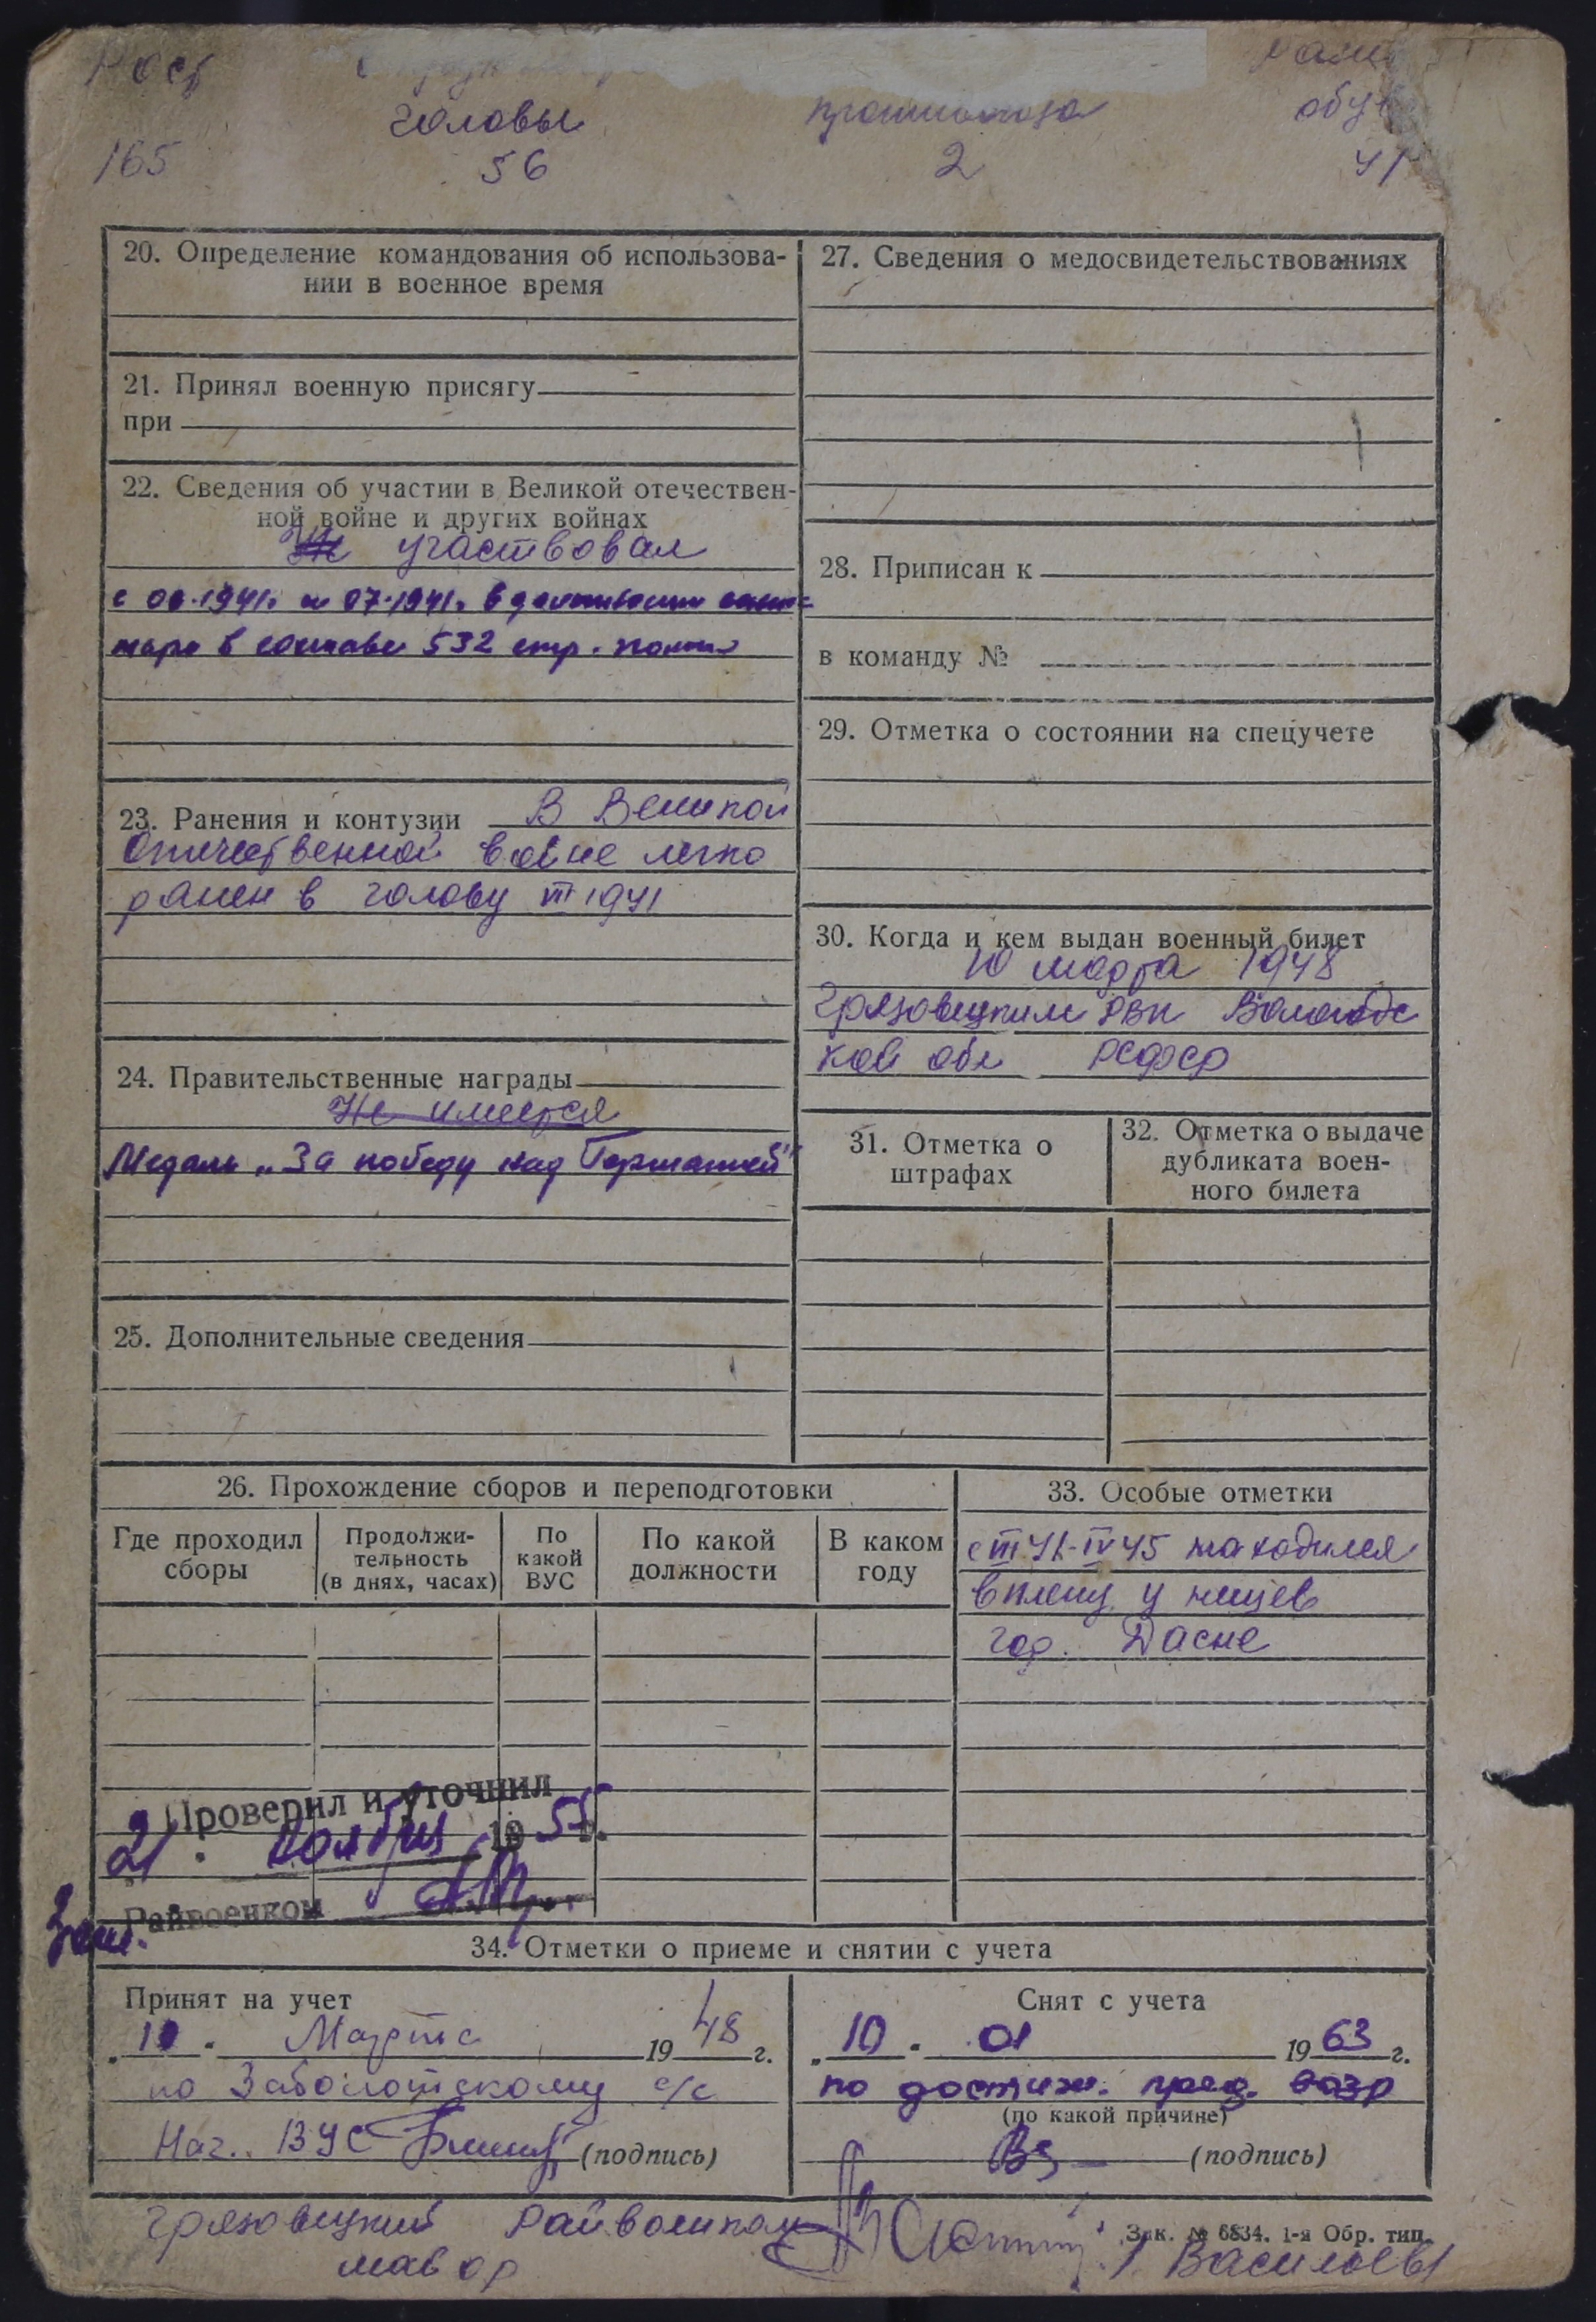 Рост
головы
противогаза
обув
165
56
2
41
20. Определение командования об использова-
нии в военное время
21. Принял военную присягу
при
22. Сведения об участии в Великой отечествен-
ной войне и других войнах
Не участвовал
с 06.1941г. по 07.1941г. в
в составе 532 стр. полка
23. Ранения и контузии В Великой
Отечественной войне легко
ранен в голову VII 1941
24. Правительственные награды
Не имеется
Медаль „За победу над Германией"
25. Дополнительные сведения
27. Сведения о медосвидетельствованиях
28. Приписан к
в команду №
29. Отметка о состоянии на спецучете
30. Когда и кем выдан военный билет
10 марта 1948
Грязовецким РВК Вологодс
кой обл РСФСР
31. Отметка о
штрафах
32. Отметка о выдаче
дубликата воен-
ного билета
26. Прохождение сборов и переподготовки
Где проходил
сборы
Продолжи-
тельность
(в днях, часах)
По
какой
ВУС
По какой
должности
В каком
году
33. Особые отметки
41-IV 45 находился
в плену у немцев
гор.
Проверил и уточнил
21 . ноября 1955г.
Зам. Райвоенком
34. Отметки о приеме и снятии с учета
Принят на учет
„10" Марта 1948 г.
по Заболотскому с/с
Нач. ВУС (подпись)
Снят с учета
„10" 01 1963 г.
по достиж. пред. возр
(по какой причине)
(подпись)
Грязовецкий Райвоенком
майор
Зак. № 6834. 1-я Обр. тип.
Васильев